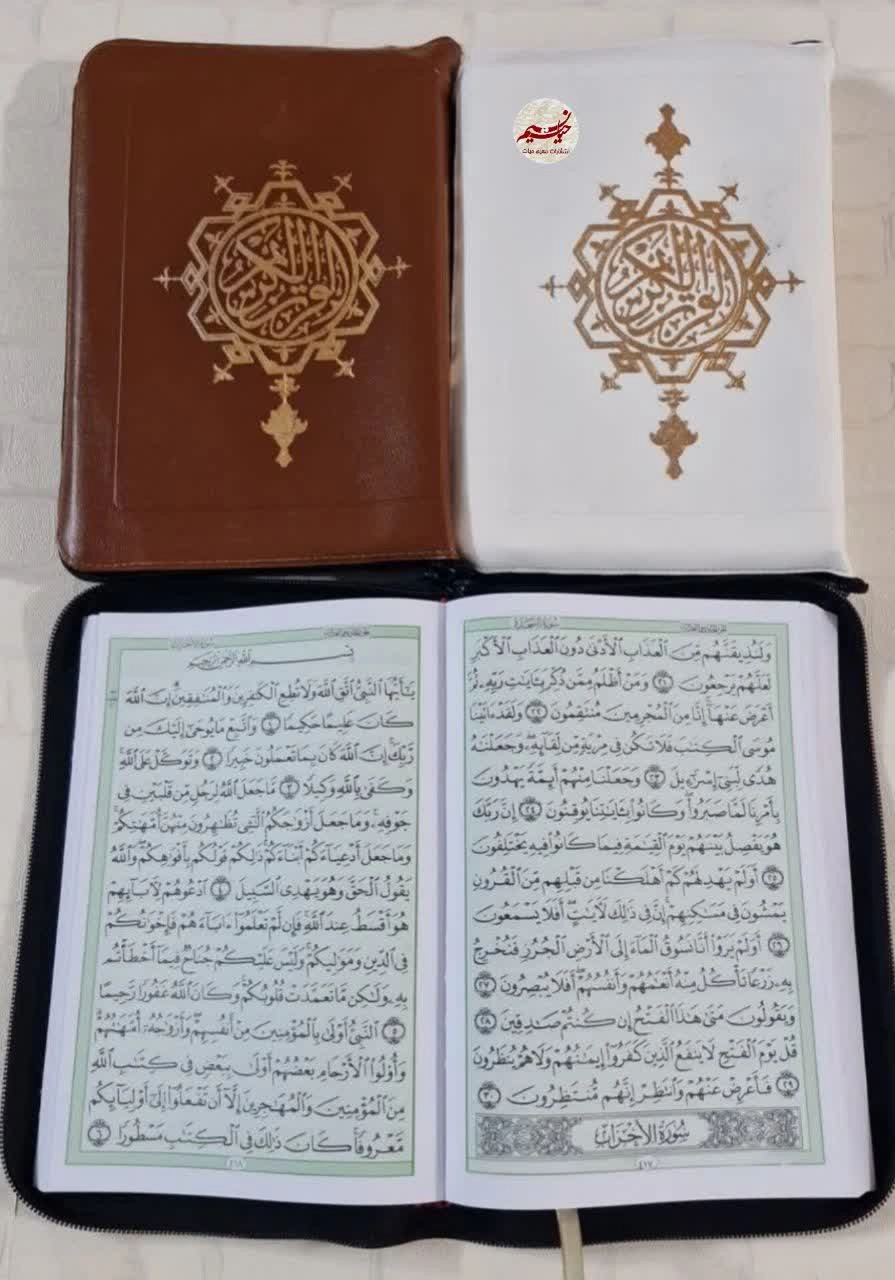 القرآن الكريم
القرآن الكريم
نسیم حیات
انتشارات نسیم حیات
سورة السجدة
وَلَنُذِيقَنَّهُم مِّنَ ٱلْعَذَابِ ٱلْأَدْنَىٰ دُونَ ٱلْعَذَابِ ٱلْأَكْبَرِ
لَعَلَّهُمْ يَرْجِعُونَ ٢١ وَمَنْ أَظْلَمُ مِمَّن ذُكِّرَ بِـَٔايَٰتِ رَبِّهِۦ ثُمَّ
أَعْرَضَ عَنْهَآ ۚ إِنَّا مِنَ ٱلْمُجْرِمِينَ مُنتَقِمُونَ ٢٢ وَلَقَدْ ءَاتَيْنَا
مُوسَى ٱلْكِتَٰبَ فَلَا تَكُن فِى مِرْيَةٍ مِّن لِّقَآئِهِۦ ۖ وَجَعَلْنَٰهُ
هُدًى لِّبَنِىٓ إِسْرَٰٓءِيلَ ٢٣ وَجَعَلْنَا مِنْهُمْ أَئِمَّةً يَهْدُونَ
بِأَمْرِنَا لَمَّا صَبَرُوا۟ ۖ وَكَانُوا۟ بِـَٔايَٰتِنَا يُوقِنُونَ ٢٤ إِنَّ رَبَّكَ
هُوَ يَفْصِلُ بَيْنَهُمْ يَوْمَ ٱلْقِيَٰمَةِ فِيمَا كَانُوا۟ فِيهِ يَخْتَلِفُونَ
٢٥ أَوَلَمْ يَهْدِ لَهُمْ كَمْ أَهْلَكْنَا مِن قَبْلِهِم مِّنَ ٱلْقُرُونِ
يَمْشُونَ فِى مَسَٰكِنِهِمْ ۚ إِنَّ فِى ذَٰلِكَ لَـَٔايَٰتٍ ۖ أَفَلَا يَسْمَعُونَ
٢٦ أَوَلَمْ يَرَوْا۟ أَنَّا نَسُوقُ ٱلْمَآءَ إِلَى ٱلْأَرْضِ ٱلْجُرُزِ فَنُخْرِجُ
بِهِۦ زَرْعًا تَأْكُلُ مِنْهُ أَنْعَٰمُهُمْ وَأَنفُسُهُمْ ۖ أَفَلَا يُبْصِرُونَ ٢٧
وَيَقُولُونَ مَتَىٰ هَٰذَا ٱلْفَتْحُ إِن كُنتُمْ صَٰدِقِينَ ٢٨
قُلْ يَوْمَ ٱلْفَتْحِ لَا يَنفَعُ ٱلَّذِينَ كَفَرُوٓا۟ إِيمَٰنُهُمْ وَلَا هُمْ يُنظَرُونَ
٢٩ فَأَعْرِضْ عَنْهُمْ وَٱنتَظِرْ إِنَّهُم مُّنتَظِرُونَ ٣٠
سُورَةُ الأَحْزَابِ
٤١٧
بِسْمِ ٱللَّهِ ٱلرَّحْمَٰنِ ٱلرَّحِيمِ
يَٰٓأَيُّهَا ٱلنَّبِىُّ ٱتَّقِ ٱللَّهَ وَلَا تُطِعِ ٱلْكَٰفِرِينَ وَٱلْمُنَٰفِقِينَ ۗ إِنَّ ٱللَّهَ
كَانَ عَلِيمًا حَكِيمًا ١ وَٱتَّبِعْ مَا يُوحَىٰٓ إِلَيْكَ مِن
رَّبِّكَ ۚ إِنَّ ٱللَّهَ كَانَ بِمَا تَعْمَلُونَ خَبِيرًا ٢ وَتَوَكَّلْ عَلَى ٱللَّهِ ۚ
وَكَفَىٰ بِٱللَّهِ وَكِيلًا ٣ مَّا جَعَلَ ٱللَّهُ لِرَجُلٍ مِّن قَلْبَيْنِ فِى
جَوْفِهِۦ ۚ وَمَا جَعَلَ أَزْوَٰجَكُمُ ٱلَّٰٓـِٔى تُظَٰهِرُونَ مِنْهُنَّ أُمَّهَٰتِكُمْ ۚ
وَمَا جَعَلَ أَدْعِيَآءَكُمْ أَبْنَآءَكُمْ ۚ ذَٰلِكُمْ قَوْلُكُم بِأَفْوَٰهِكُمْ ۖ وَٱللَّهُ
يَقُولُ ٱلْحَقَّ وَهُوَ يَهْدِى ٱلسَّبِيلَ ٤ ٱدْعُوهُمْ لِـَٔابَآئِهِمْ
هُوَ أَقْسَطُ عِندَ ٱللَّهِ ۚ فَإِن لَّمْ تَعْلَمُوٓا۟ ءَابَآءَهُمْ فَإِخْوَٰنُكُمْ
فِى ٱلدِّينِ وَمَوَٰلِيكُمْ ۚ وَلَيْسَ عَلَيْكُمْ جُنَاحٌ فِيمَآ أَخْطَأْتُم
بِهِۦ وَلَٰكِن مَّا تَعَمَّدَتْ قُلُوبُكُمْ ۚ وَكَانَ ٱللَّهُ غَفُورًا رَّحِيمًا
٥ ٱلنَّبِىُّ أَوْلَىٰ بِٱلْمُؤْمِنِينَ مِنْ أَنفُسِهِمْ ۖ وَأَزْوَٰجُهُۥٓ أُمَّهَٰتُهُمْ ۗ
وَأُو۟لُوا۟ ٱلْأَرْحَامِ بَعْضُهُمْ أَوْلَىٰ بِبَعْضٍ فِى كِتَٰبِ ٱللَّهِ
مِنَ ٱلْمُؤْمِنِينَ وَٱلْمُهَٰجِرِينَ إِلَّآ أَن تَفْعَلُوٓا۟ إِلَىٰٓ أَوْلِيَآئِكُم
مَّعْرُوفًا ۚ كَانَ ذَٰلِكَ فِى ٱلْكِتَٰبِ مَسْطُورًا ٦
٤١٨